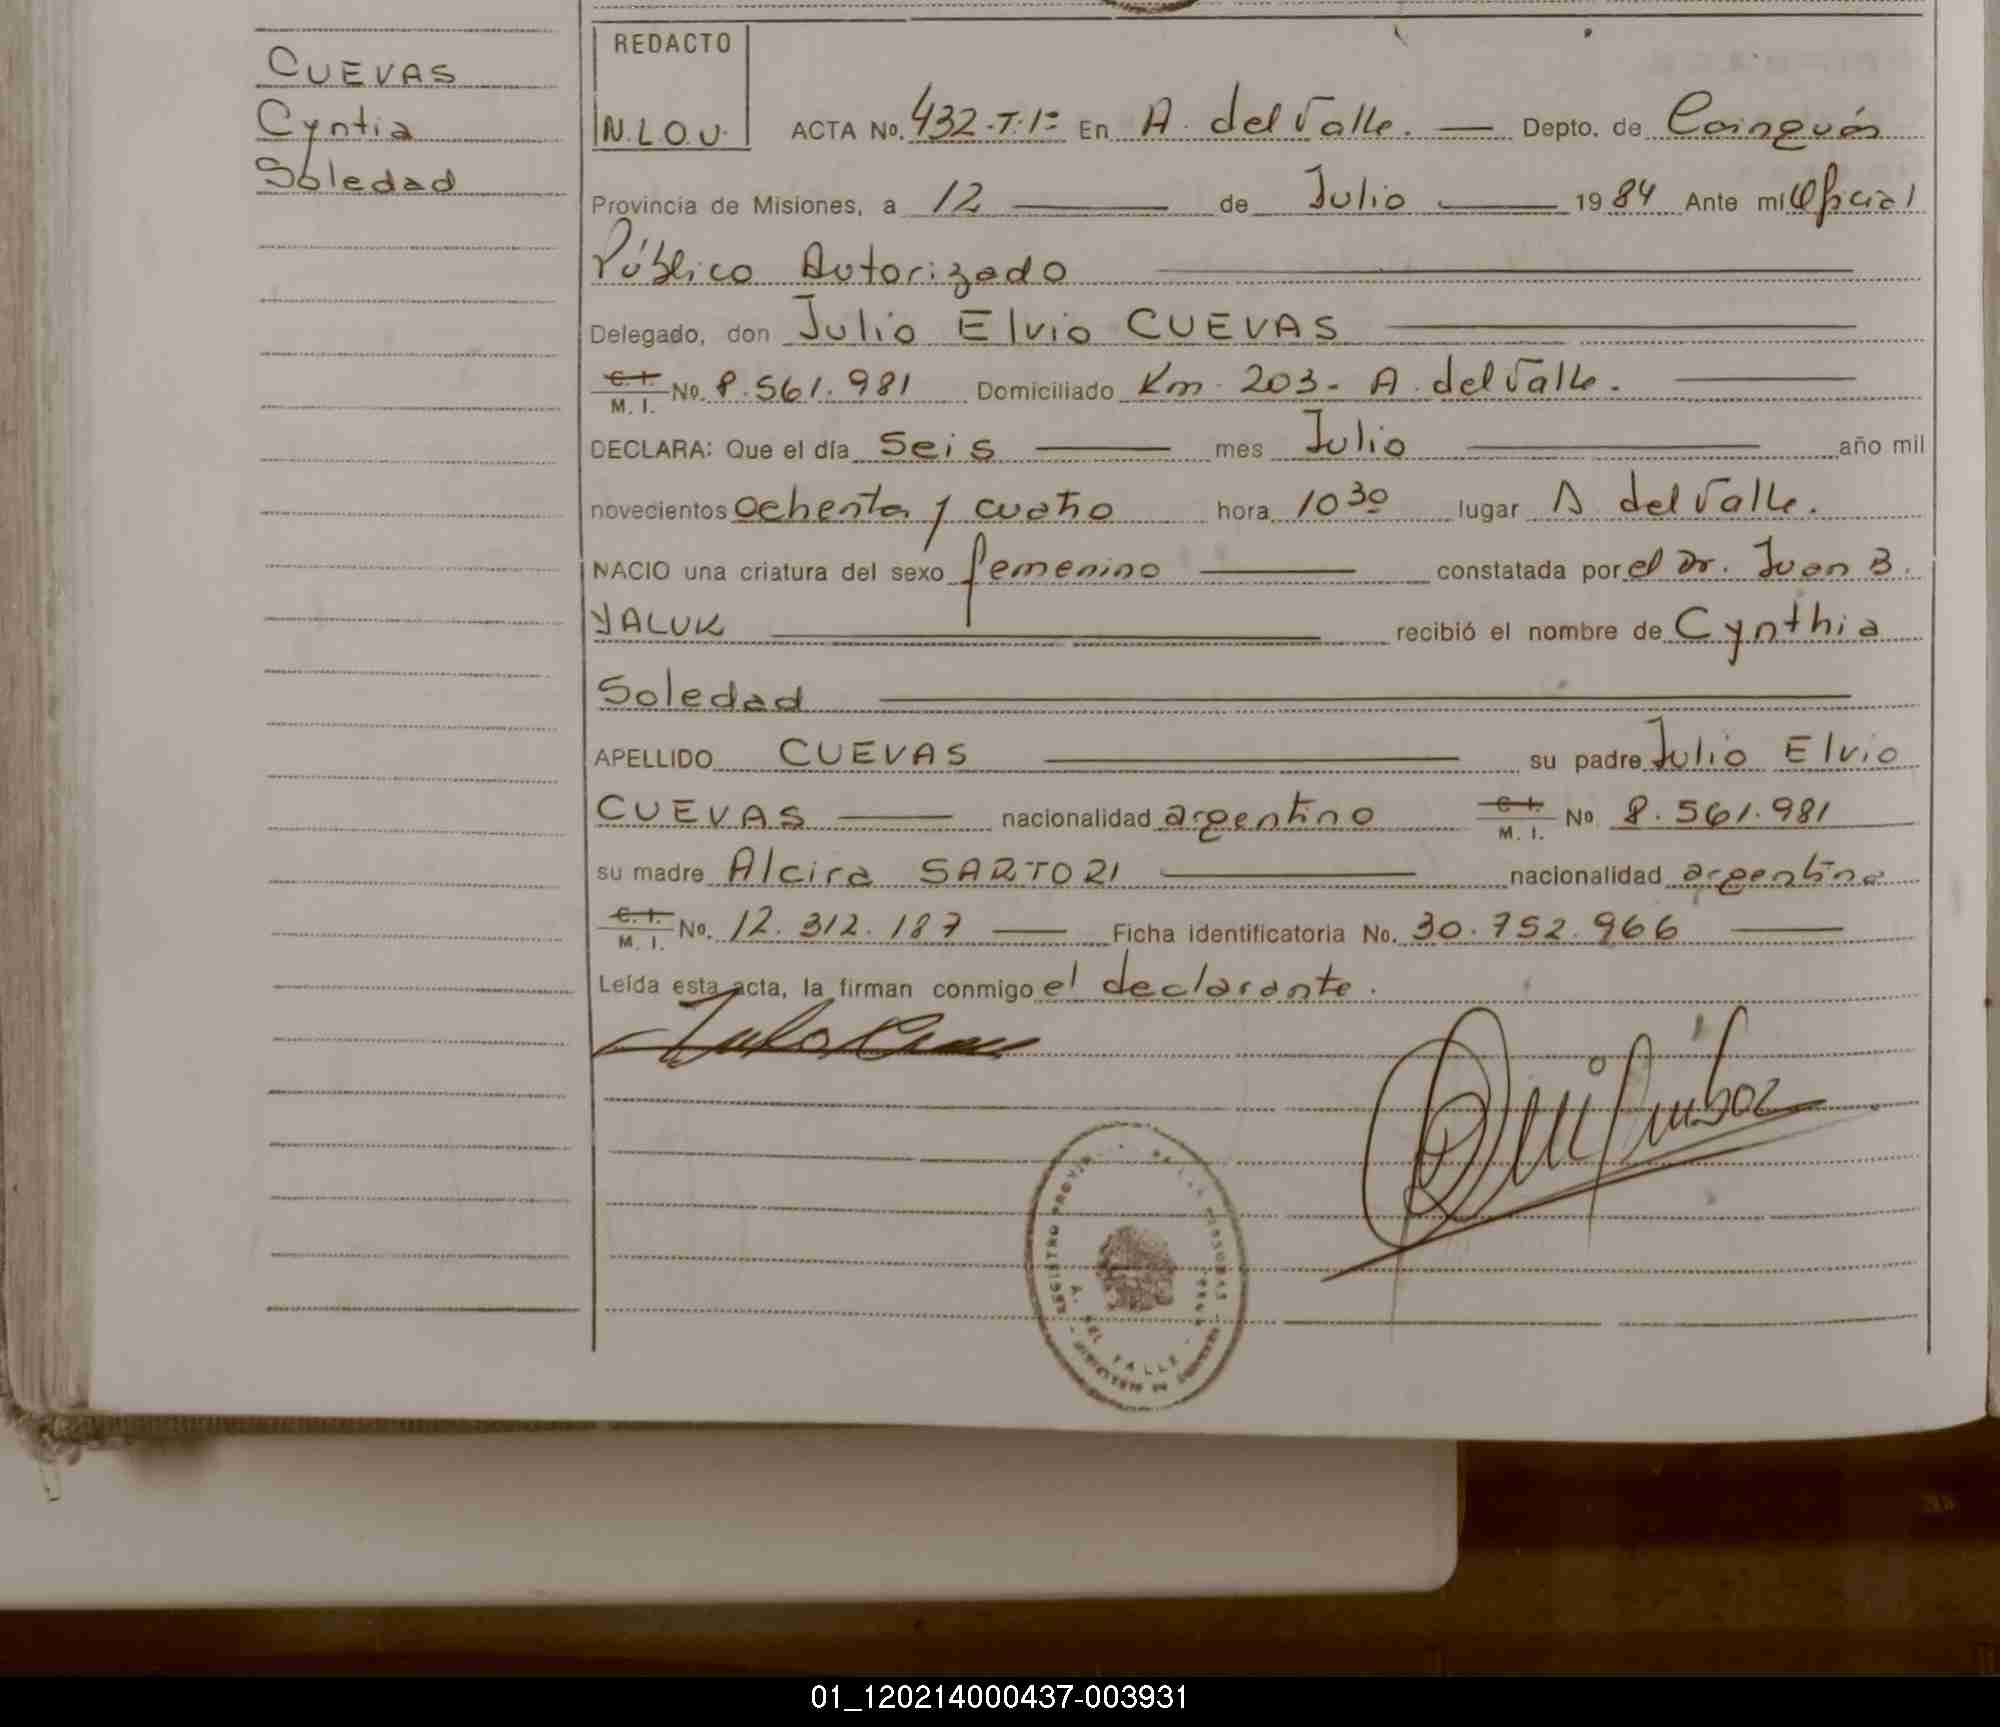 CUEVAS
Cyntia
Soledad
REDACTO
N.L.O.U.
ACTA No. 432-T.1º En A. del Valle. Depto. de Cainguás
Provincia de Misiones, a 12 de Julio 1984 Ante mi Oficial
Público Autorizado
Delegado, don Julio Elvio CUEVAS
C. I. M. I. No. 8.561.981 Domiciliado Km. 203- A. del Valle.
DECLARA: Que el día Seis mes Julio año mil
novecientos ochenta y cuatro hora 10 30 lugar A. del Valle.
NACIO una criatura del sexo femenino constatada por el Dr. Juan B.
YALUK recibió el nombre de Cynthia
Soledad
APELLIDO CUEVAS su padre Julio Elvio
CUEVAS nacionalidad argentino C. I. M. I. No 8.561.981
su madre Alcira SARTORI nacionalidad argentina
C. I. M. I. No. 12.312.187 Ficha identificatoria No. 30.752.966
Leída esta acta, la firman conmigo el declarante.
REGISTRO PERSONAS
A. DEL VALLE
01_120214000437-003931